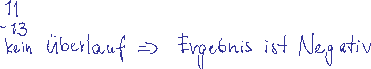 11
-13
kein Überlauf => Ergebnis ist Negativ